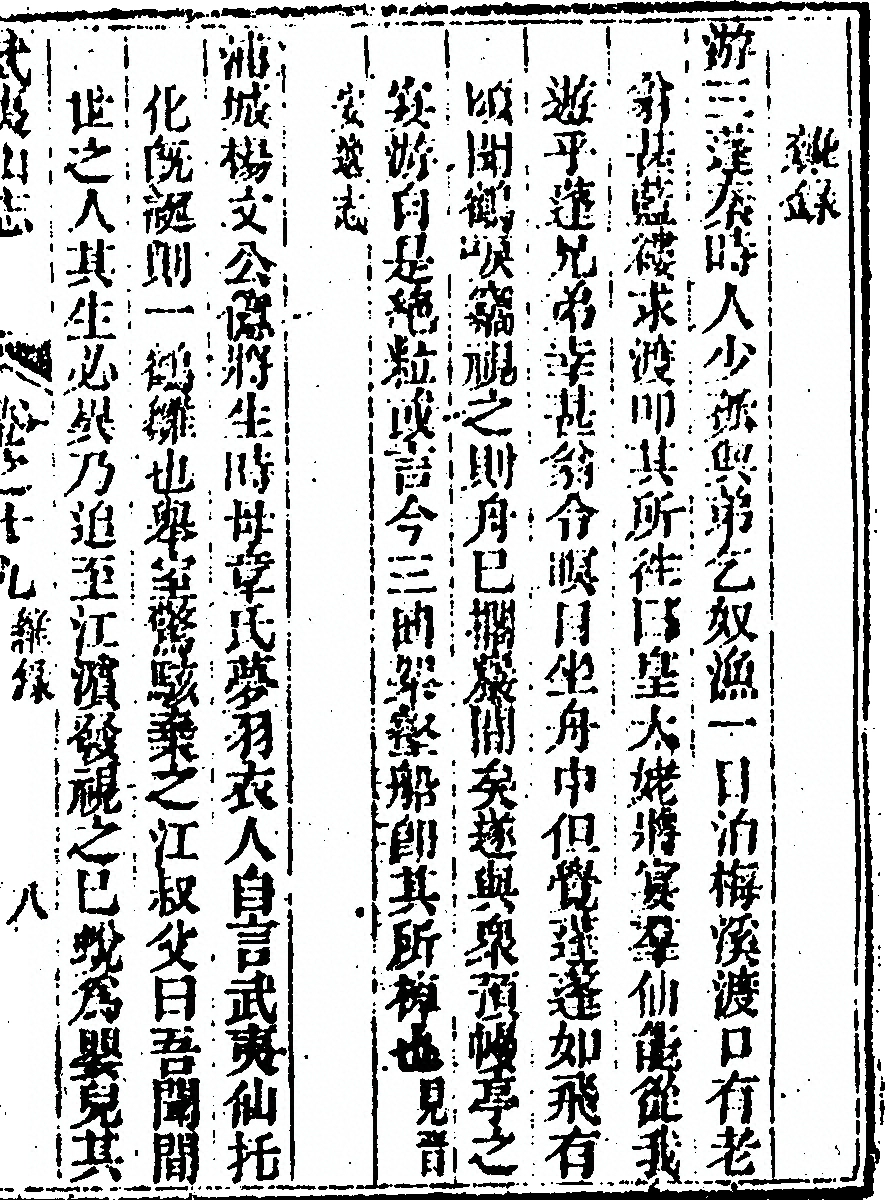 雜錄
游三蓬秦時人少孤與弟乞奴漁一日泊梅溪渡口有老
翁甚藍褸求渡叩其所往曰皇太姥將宴羣仙能從我
遊乎蓬兄弟幸甚翁令瞑目坐舟中但覺蓬蓬如飛有
頃聞鶴唳竊視之則舟已擱巖間矣遂與衆預幔亭之
筵游自是絕粒或言今三曲架壑船卽其所棹也見晉
安逸志
浦城楊文公億將生時母章氏夢羽衣人自言武夷仙托
化旣誕則一鶴雛也舉室驚駭棄之江叔父曰吾聞間
世之人其生必異乃追至江濱發視之已蛻爲嬰兒其
武夷山志 卷之十九 雜錄 八